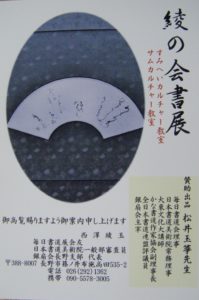 綾の会書展
すみへいカルチャー教室
サムカルチャー教室
賛助出品 松井玉箏先生
毎日書道会理事
日本書道美術院常務理事
かな書道作家協会副理事長
大東文化大講師
全日本書道連盟評議員
銀扇会主宰
御高覧賜りますよう御案内申し上げます
西澤綾玉
毎日書道展会友
日本書道美術院一般部審査員
銀扇会長野支部 代表
〒388-8007 長野市篠ノ井布施高田535-2
電話 026(292)1362
携帯 090-5578-3005